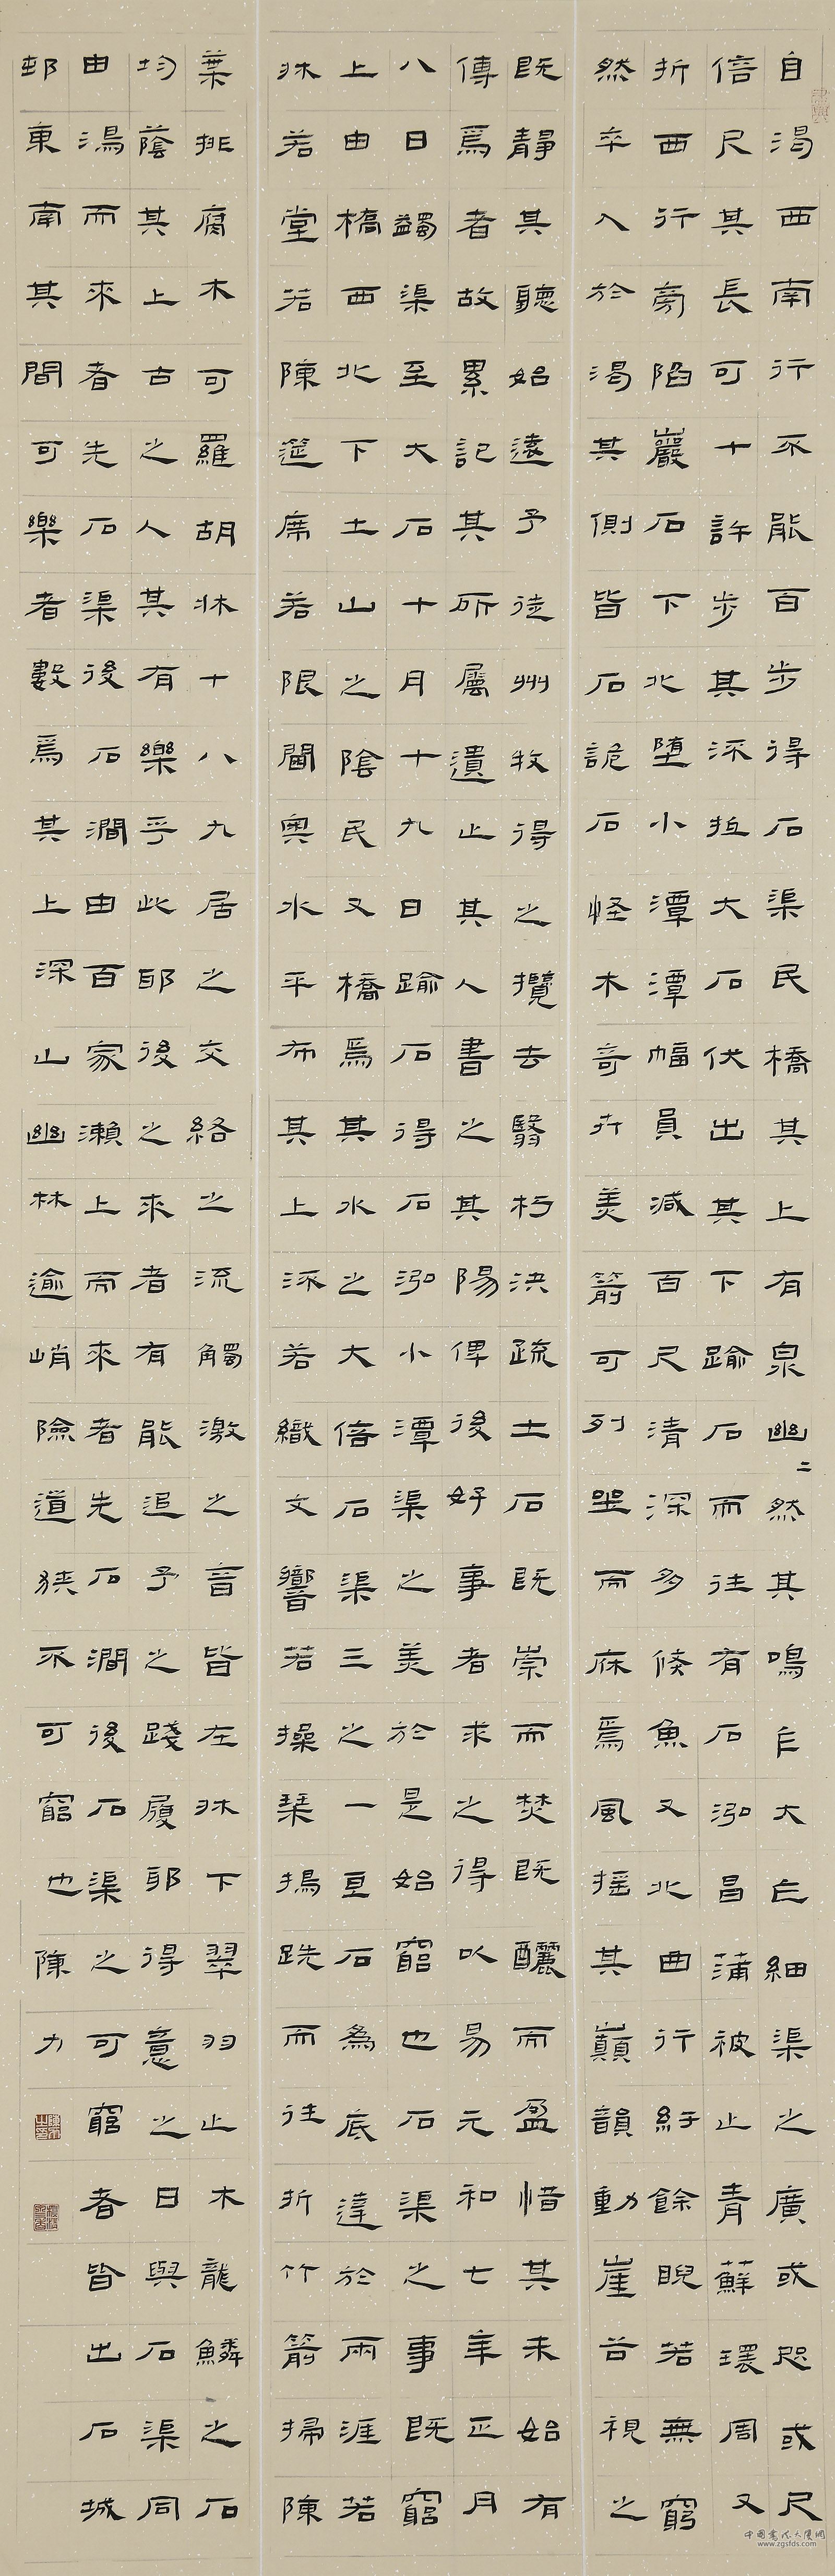 自渴西南行不能百步得石渠民橋其上有泉幽〻然其鳴乍大乍細渠之廣或咫或尺
倍尺其長可十許步其流抵大石伏出其下踰石而往有石泓昌蒲被之青蘚環周又
折西行旁陷巖石下北墮小潭潭幅員減百尺清深多鯈魚又北曲行紆餘睨若無窮
然卒入於渴其側皆石詭石怪木奇卉美箭可列坐而庥焉風搖其巔韻動崖谷視之
既靜其聽始遠予從州牧得之攬去翳朽決疏土石既崇而焚既釃而盈惜其未始有
傳焉者故累記其所屬遺之其人書之其陽俾後好事者求之得以易元和七年正月
八日蠲渠至大石十月十九日踰石得石泓小潭渠之美於是始窮也石渠之事既窮
上由橋西北下土山之陰民又橋焉其水之大倍石渠三之一亘石為底達於兩涯若
牀若堂若陳筵席若限閫奧水平布其上流若織文響若操琴揭跣而往折竹箭掃陳
葉排腐木可羅胡牀十八九居之交絡之流觸激之音皆在牀下翠羽之木龍鱗之石
均蔭其上古之人其有樂乎此耶後之來者有能追予之踐履耶得意之日與石渠同
由渴而來者先石渠後石澗由百家瀨上而來者先石澗後石渠之可窮者皆出石城
邨東南其間可樂者數焉其上深山幽林逾峭險道狹不可窮也陳力
中国书法大厦网
www.zgsfds.com